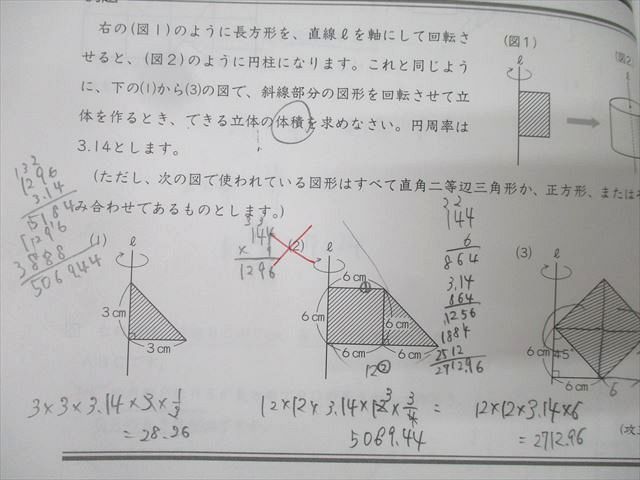 右の(図1)のように長方形を、直線ℓを軸にして回転さ
せると、(図2)のように円柱になります。これと同じよう
に、下の(1)から(3)の図で、斜線部分の図形を回転させて立
体を作るとき、できる立体の体積を求めなさい。円周率は
3.14とします。
(ただし、次の図で使われている図形はすべて直角二等辺三角形か、正方形、または
み合わせてあるものとします。)
(図1)
ℓ
(図2)
ℓ
1296
3.14
5184
1296
3888
5069.44
144
×
1296
144
6
864
3.14
864
1256
1884
2512
2712.96
(1)
ℓ
3cm
3cm
(2)
ℓ
6cm
①
6cm
6cm
6cm
6cm
12
②
(3)
ℓ
45°
6cm
6
3×3×3.14×3×1/3
=28.26
12×12×3.14×12×3/4 =
5069.44
12×12×3.14×6
=2712.96
(攻